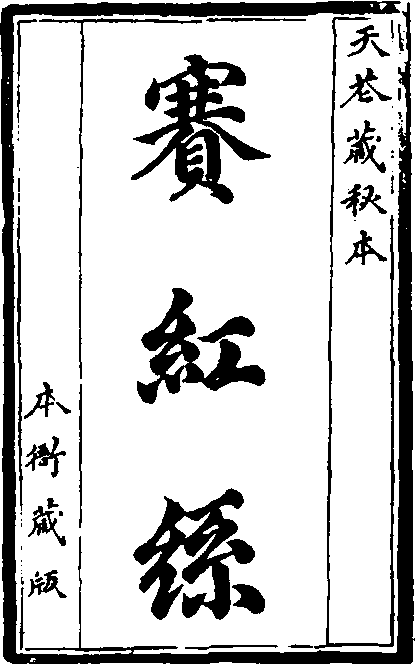 天花藏秘本
賽紅絲
本衙藏版